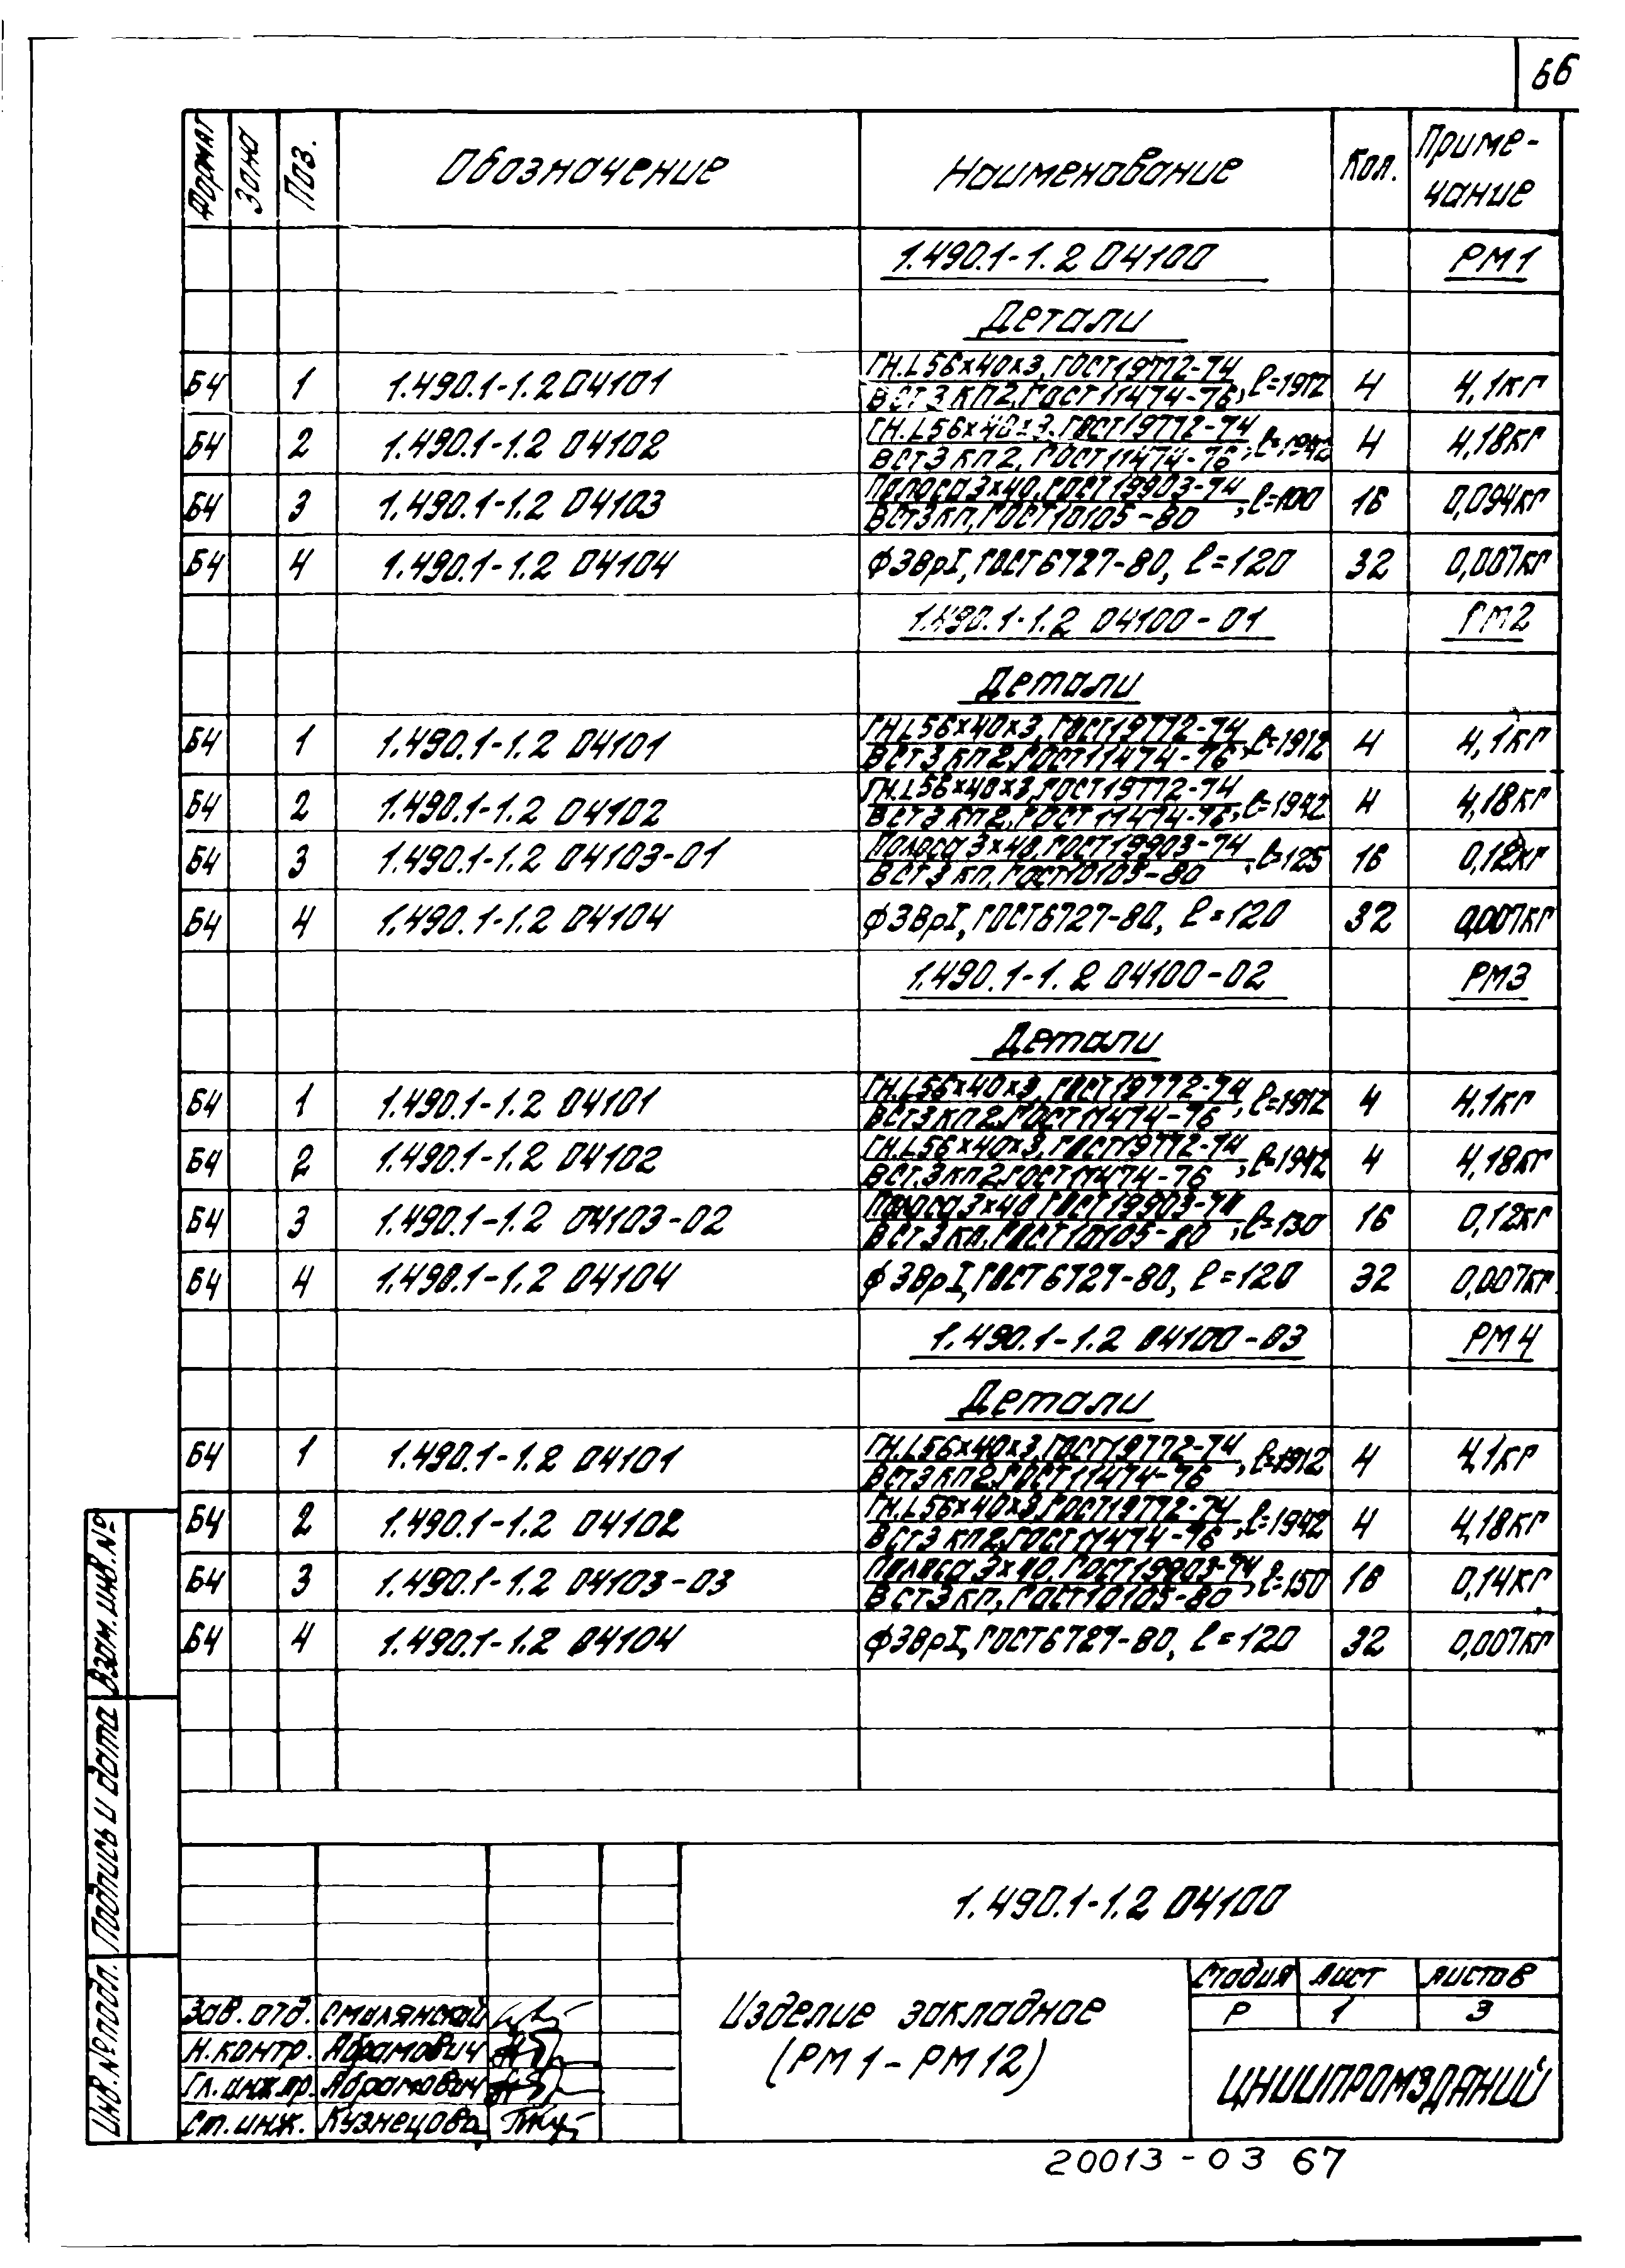 66
Формат Зона Поз. Обозначение Наименование Кол. Приме-
чание
1.490.1-1.2 04100 РМ1
Детали
Б4 1 1.490.1-1.2 04101 ГН.L56×40×3, ГОСТ19772-74
ВСТ3КП2, ГОСТ11474-76, ℓ=1912 4 4,1кг
Б4 2 1.490.1-1.2 04102 ГН.L56×40×3, ГОСТ19772-74
ВСТ3КП2, ГОСТ11474-76, ℓ=1942 4 4,18кг
Б4 3 1.490.1-1.2 04103 Полоса 3×40, ГОСТ19903-74
ВСТ3КП, ГОСТ10105-80, ℓ=100 16 0,094кг
Б4 4 1.490.1-1.2 04104 ф3ВрI, ГОСТ6727-80, ℓ=120 32 0,007кг
1.490.1-1.2 04100-01 РМ2
Детали
Б4 1 1.490.1-1.2 04101 ГН.L56×40×3, ГОСТ19772-74
ВСТ3КП2, ГОСТ11474-76, ℓ=1912 4 4,1кг
Б4 2 1.490.1-1.2 04102 ГН.L56×40×3, ГОСТ19772-74
ВСТ3КП2, ГОСТ11474-76, ℓ=1942 4 4,18кг
Б4 3 1.490.1-1.2 04103-01 Полоса 3×40, ГОСТ19903-74
ВСТ3КП, ГОСТ10105-80, ℓ=125 16 0,12кг
Б4 4 1.490.1-1.2 04104 ф3ВрI, ГОСТ6727-80, ℓ=120 32 0,007кг
1.490.1-1.2 04100-02 РМ3
Детали
Б4 1 1.490.1-1.2 04101 ГН.L56×40×3, ГОСТ19772-74
ВСТ3КП2, ГОСТ11474-76, ℓ=1912 4 4,1кг
Б4 2 1.490.1-1.2 04102 ГН.L56×40×3, ГОСТ19772-74
ВСТ.3КП2, ГОСТ11474-76, ℓ=1942 4 4,18кг
Б4 3 1.490.1-1.2 04103-02 Полоса 3×40 ГОСТ19903-74
ВСТ3КП, ГОСТ10105-80, ℓ=130 16 0,12кг
Б4 4 1.490.1-1.2 04104 ф3ВрI, ГОСТ6727-80, ℓ=120 32 0,007кг
1.490.1-1.2 04100-03 РМ4
Детали
Б4 1 1.490.1-1.2 04101 ГН.L56×40×3, ГОСТ19772-74
ВСТ3КП2, ГОСТ11474-76, ℓ=1912 4 4,1кг
Б4 2 1.490.1-1.2 04102 ГН.L56×40×3, ГОСТ19772-74
ВСТ3КП2, ГОСТ11474-76, ℓ=1942 4 4,18кг
Б4 3 1.490.1-1.2 04103-03 Полоса 3×40, ГОСТ19903-74
ВСТ3КП, ГОСТ10105-80, ℓ=150 16 0,14кг
Б4 4 1.490.1-1.2 04104 ф3ВрI, ГОСТ6727-80, ℓ=120 32 0,007кг
Взам. инв. №
Подпись и дата
Инв. № подл.
1.490.1-1.2 04100
Зав. отд. Смилянский
Н. контр. Абрамович
Гл. инж. пр. Абрамович
Ст. инж. Кузнецова
Изделие закладное
(РМ1-РМ12)
Стадия Лист Листов
Р 1 3
ЦНИИПРОМЗДАНИЙ
20013-03 67